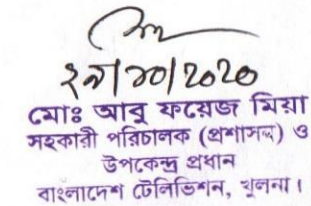 ২৯/১০/2020
মোঃ আবু ফয়েজ মিয়া
সহকারী পরিচালক (প্রশাসন) ও
উপকেন্দ্র প্রধান
বাংলাদেশ টেলিভিশন, খুলনা।